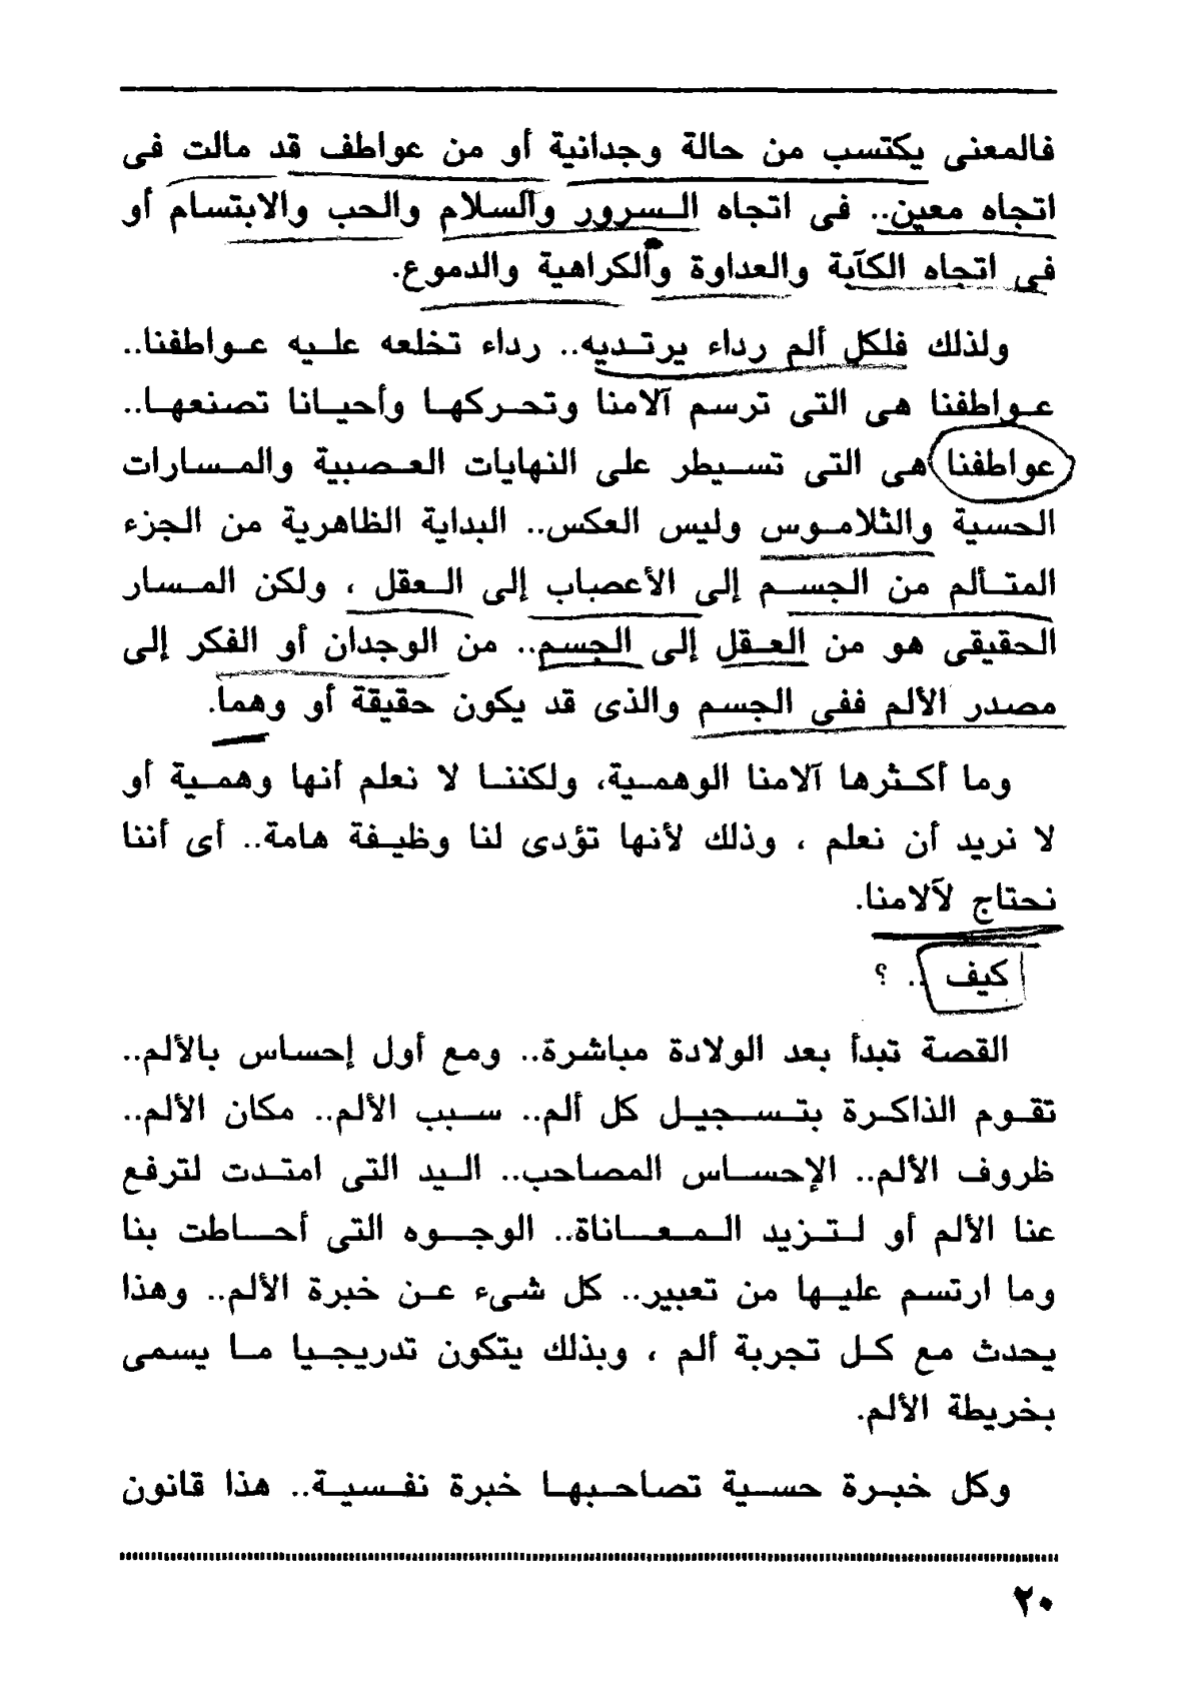 فالمعنى يكتسب من حالة وجدانية أو من عواطف قد مالت فى
اتجاه معين.. فى اتجاه السرور والسلام والحب والابتسام أو
فى اتجاه الكآبة والعداوة والكراهية والدموع.
ولذلك فلكل ألم رداء يرتديه.. رداء تخلعه عليه عواطفنا..
عواطفنا هى التى ترسم آلامنا وتحركها وأحيانا تصنعها..
عواطفنا هى التى تسيطر على النهايات العصبية والمسارات
الحسية والثلاموس وليس العكس.. البداية الظاهرية من الجزء
المتألم من الجسم إلى الأعصاب إلى العقل ، ولكن المسار
الحقيقى هو من العقل إلى الجسم.. من الوجدان أو الفكر إلى
مصدر الألم ففى الجسم والذى قد يكون حقيقة أو وهما.
وما أكثرها آلامنا الوهمية، ولكننا لا نعلم أنها وهمية أو
لا نريد أن نعلم ، وذلك لأنها تؤدى لنا وظيفة هامة.. أى أننا
نحتاج لآلامنا.
كيف .. ؟
القصة تبدأ بعد الولادة مباشرة.. ومع أول إحساس بالألم..
تقوم الذاكرة بتسجيل كل ألم.. سبب الألم.. مكان الألم..
ظروف الألم.. الإحساس المصاحب.. اليد التى امتدت لترفع
عنا الألم أو لتزيد المعاناة.. الوجوه التى أحاطت بنا
وما ارتسم عليها من تعبير.. كل شىء عن خبرة الألم.. وهذا
يحدث مع كل تجربة ألم ، وبذلك يتكون تدريجيا ما يسمى
بخريطة الألم.
وكل خبرة حسية تصاحبها خبرة نفسية.. هذا قانون
٢٠